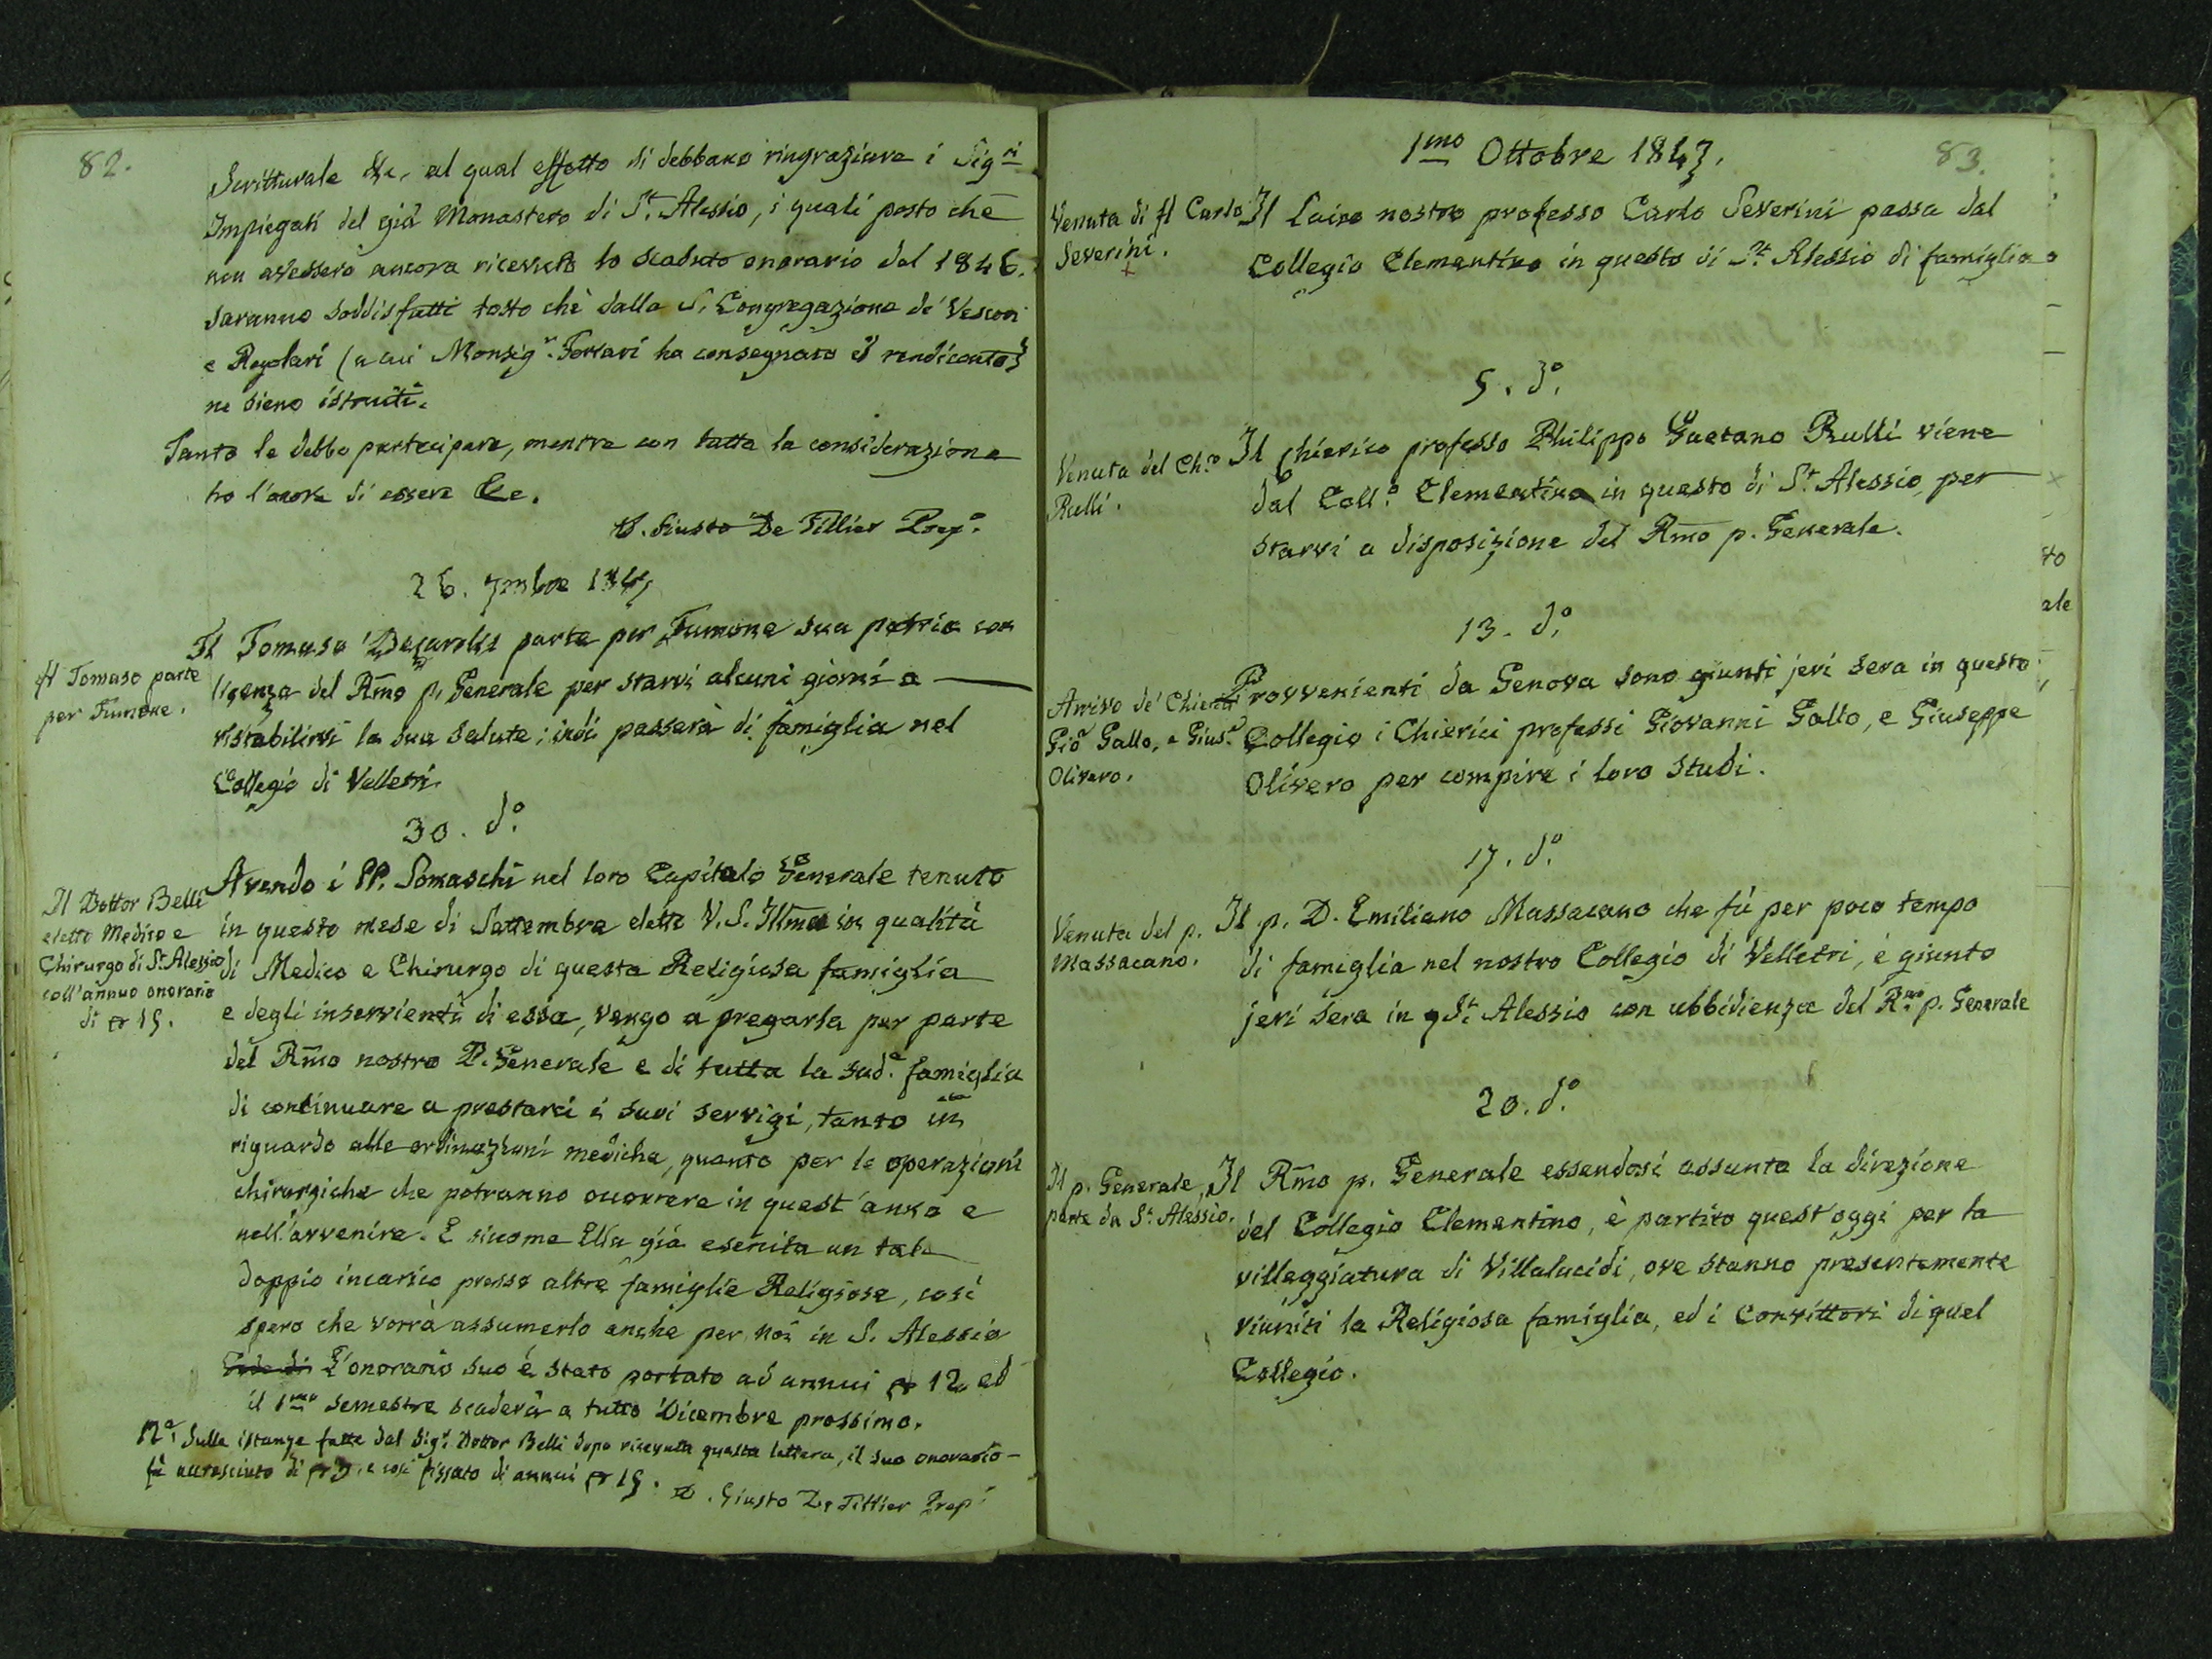 82.
Scritturale &c, al qual effetto si debbano ringraziare i Sig.ri
Impiegati del già Monastero di S.t Alessio, i quali posto che
non avessero ancora ricevuto lo scaduto onorario del 1846.
saranno soddisfatti tosto chè dalla S. Congregazione de' Vescovi
e Regolari (a cui Monsig.r Ferrari ha consegnato il rendiconto)
ne sieno istruiti.
Tanto le debbo partecipare, mentre con tutta la considerazione
ho l'onore di essere &c.
D. Giusto De Tillier Prep.o
26. 7mbre 1847
Fl Tomaso parte
per Fumone.
Fl Tomaso Decarolis parte per Fumone sua patria con
licenza del Rmo p. Generale per starvi alcuni giorni a
ristabilirvi la sua salute; indi passerà di famiglia nel
Collegio di Velletri.
30. d.o
Il Dottor Belli
eletto Medico e
Chirurgo di S.t Alessio
coll'annuo onorario
di 15.
Avendo i PP. Somaschi nel loro Capitolo Generale tenuto
in questo mese di Settembre eletto V. S. Illma in qualità
di Medico e Chirurgo di questa Religiosa famiglia
e degli inservienti di essa, vengo a pregarla per parte
del Rmo nostro P. Generale e di tutta la sud.a famiglia
di continuare a prestarci i suoi servigi, tanto in
riguardo alle ordinazioni mediche, quanto per le operazioni
chirurgiche che potranno occorrere in quest'anno e
nell'avvenire. E siccome Ella già esercita un tale
doppio incarico presso altre famiglie Religiose, così
spero che vorrà assumerlo anche per noi in S. Alessio
L'onorario suo è stato portato ad annui 12 ed
il 1mo semestre scaderà a tutto Dicembre prossimo.
N.a Sulle istanze fatte dal Sig.r Dottor Belli dopo ricevuta questa lettera, il suo onorario
fù accresciuto di 3, e così fissato di annui 15.
D. Giusto De Tillier Prep.o
1mo Ottobre 1847.
83.
Venuta di fl Carlo
Severini.
Il Laico nostro professo Carlo Severini passa dal
Collegio Clementino in questo di S.t Alessio di famiglia
5. d.o
Venuta del Ch.o
Rulli.
Il chierico professo Philippo Gaetano Rulli viene
dal Coll.o Clementino in questo di S.t Alessio, per
starvi a disposizione del Rmo p. Generale.
13. d.o
Arrivo de' Chierici
Gio Gallo, e Gius.e
Olivero.
Provvenienti da Genova sono giunti jeri sera in questo
Collegio i Chierici professi Giovanni Gallo, e Giuseppe
Olivero per compire i loro studi.
17. d.o
Venuta del p.
Massacano.
Il p. D. Emiliano Massacano che fù per poco tempo
di famiglia nel nostro Collegio di Velletri, è giunto
jeri sera in q S.t Alessio con ubbidienza del R.mo p. Generale
20. d.o
Il p. Generale
parte da S.t Alessio.
Il Rmo p. Generale essendosi assunta la direzione
del Collegio Clementino, è partito quest'oggi per la
villeggiatura di Villalucidi, ove stanno presentemente
riuniti la Religiosa famiglia, ed i Convittori di quel
Collegio.
to
ale